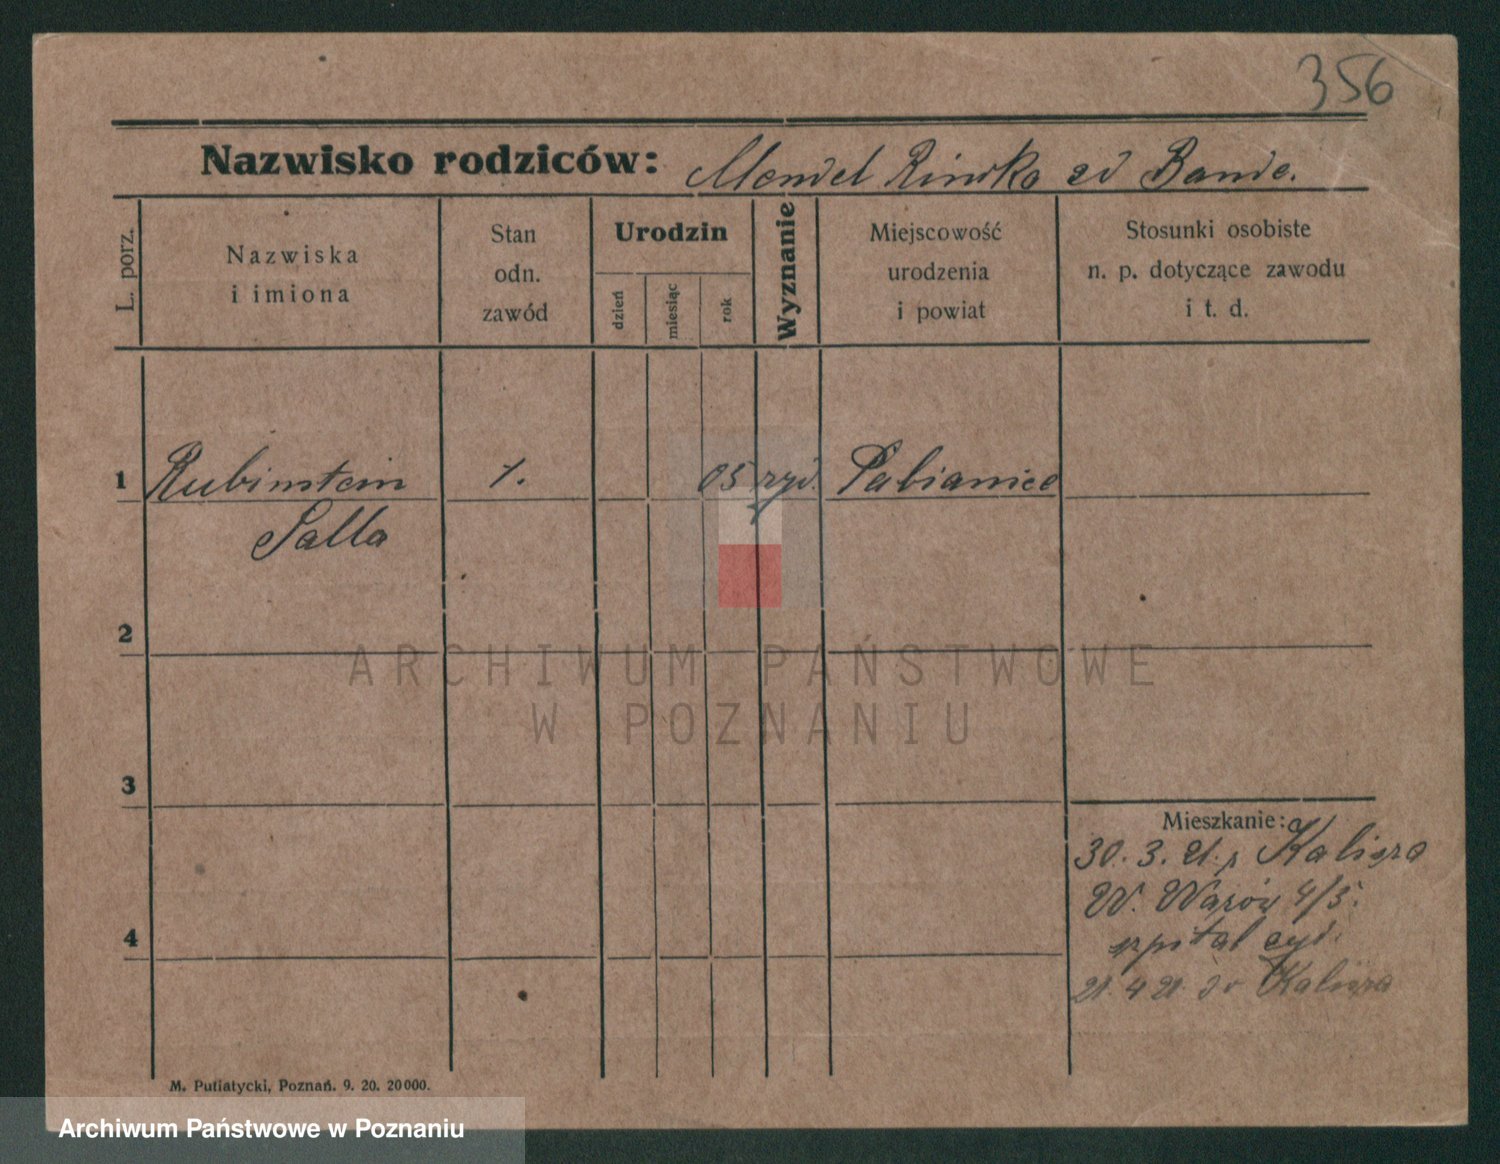 356
Nazwisko rodziców: Mendel Riwka zd Bande.
L. porz.
Nazwiska
i imiona
Stan
odn.
zawód
Urodzin
dzień
miesiąc
rok
Wyznanie
Miejscowość
urodzenia
i powiat
Stosunki osobiste
n. p. dotyczące zawodu
i t. d.
1 Rubinstein 1. 05 żyd. Pabianice
Salla
2
3
4
Mieszkanie:
30. 3. 21. z Kalisza
W. 4/5.
szpital żyd.
21. 4 21. do Kalisza
M. Putiatycki, Poznań. 9. 20. 20000.
ARCHIWUM PAŃSTWOWE
W POZNANIU
Archiwum Państwowe w Poznaniu